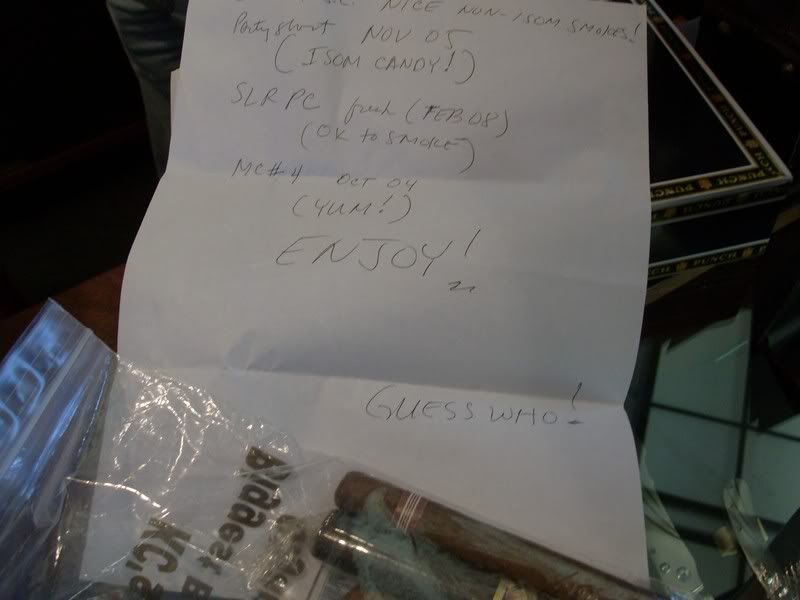 NICE NON-ISOM SMOKES!
Party Short NOV 05
(ISOM CANDY!)
SLR PC fresh (FEB 08)
(OK to SMOKE)
MC#4 OCT 04
(YUM!)
ENJOY!
GUESS WHO!
PUNCH PUNCH PUNCH
PUNCH PUNCH
Biggest
KC's